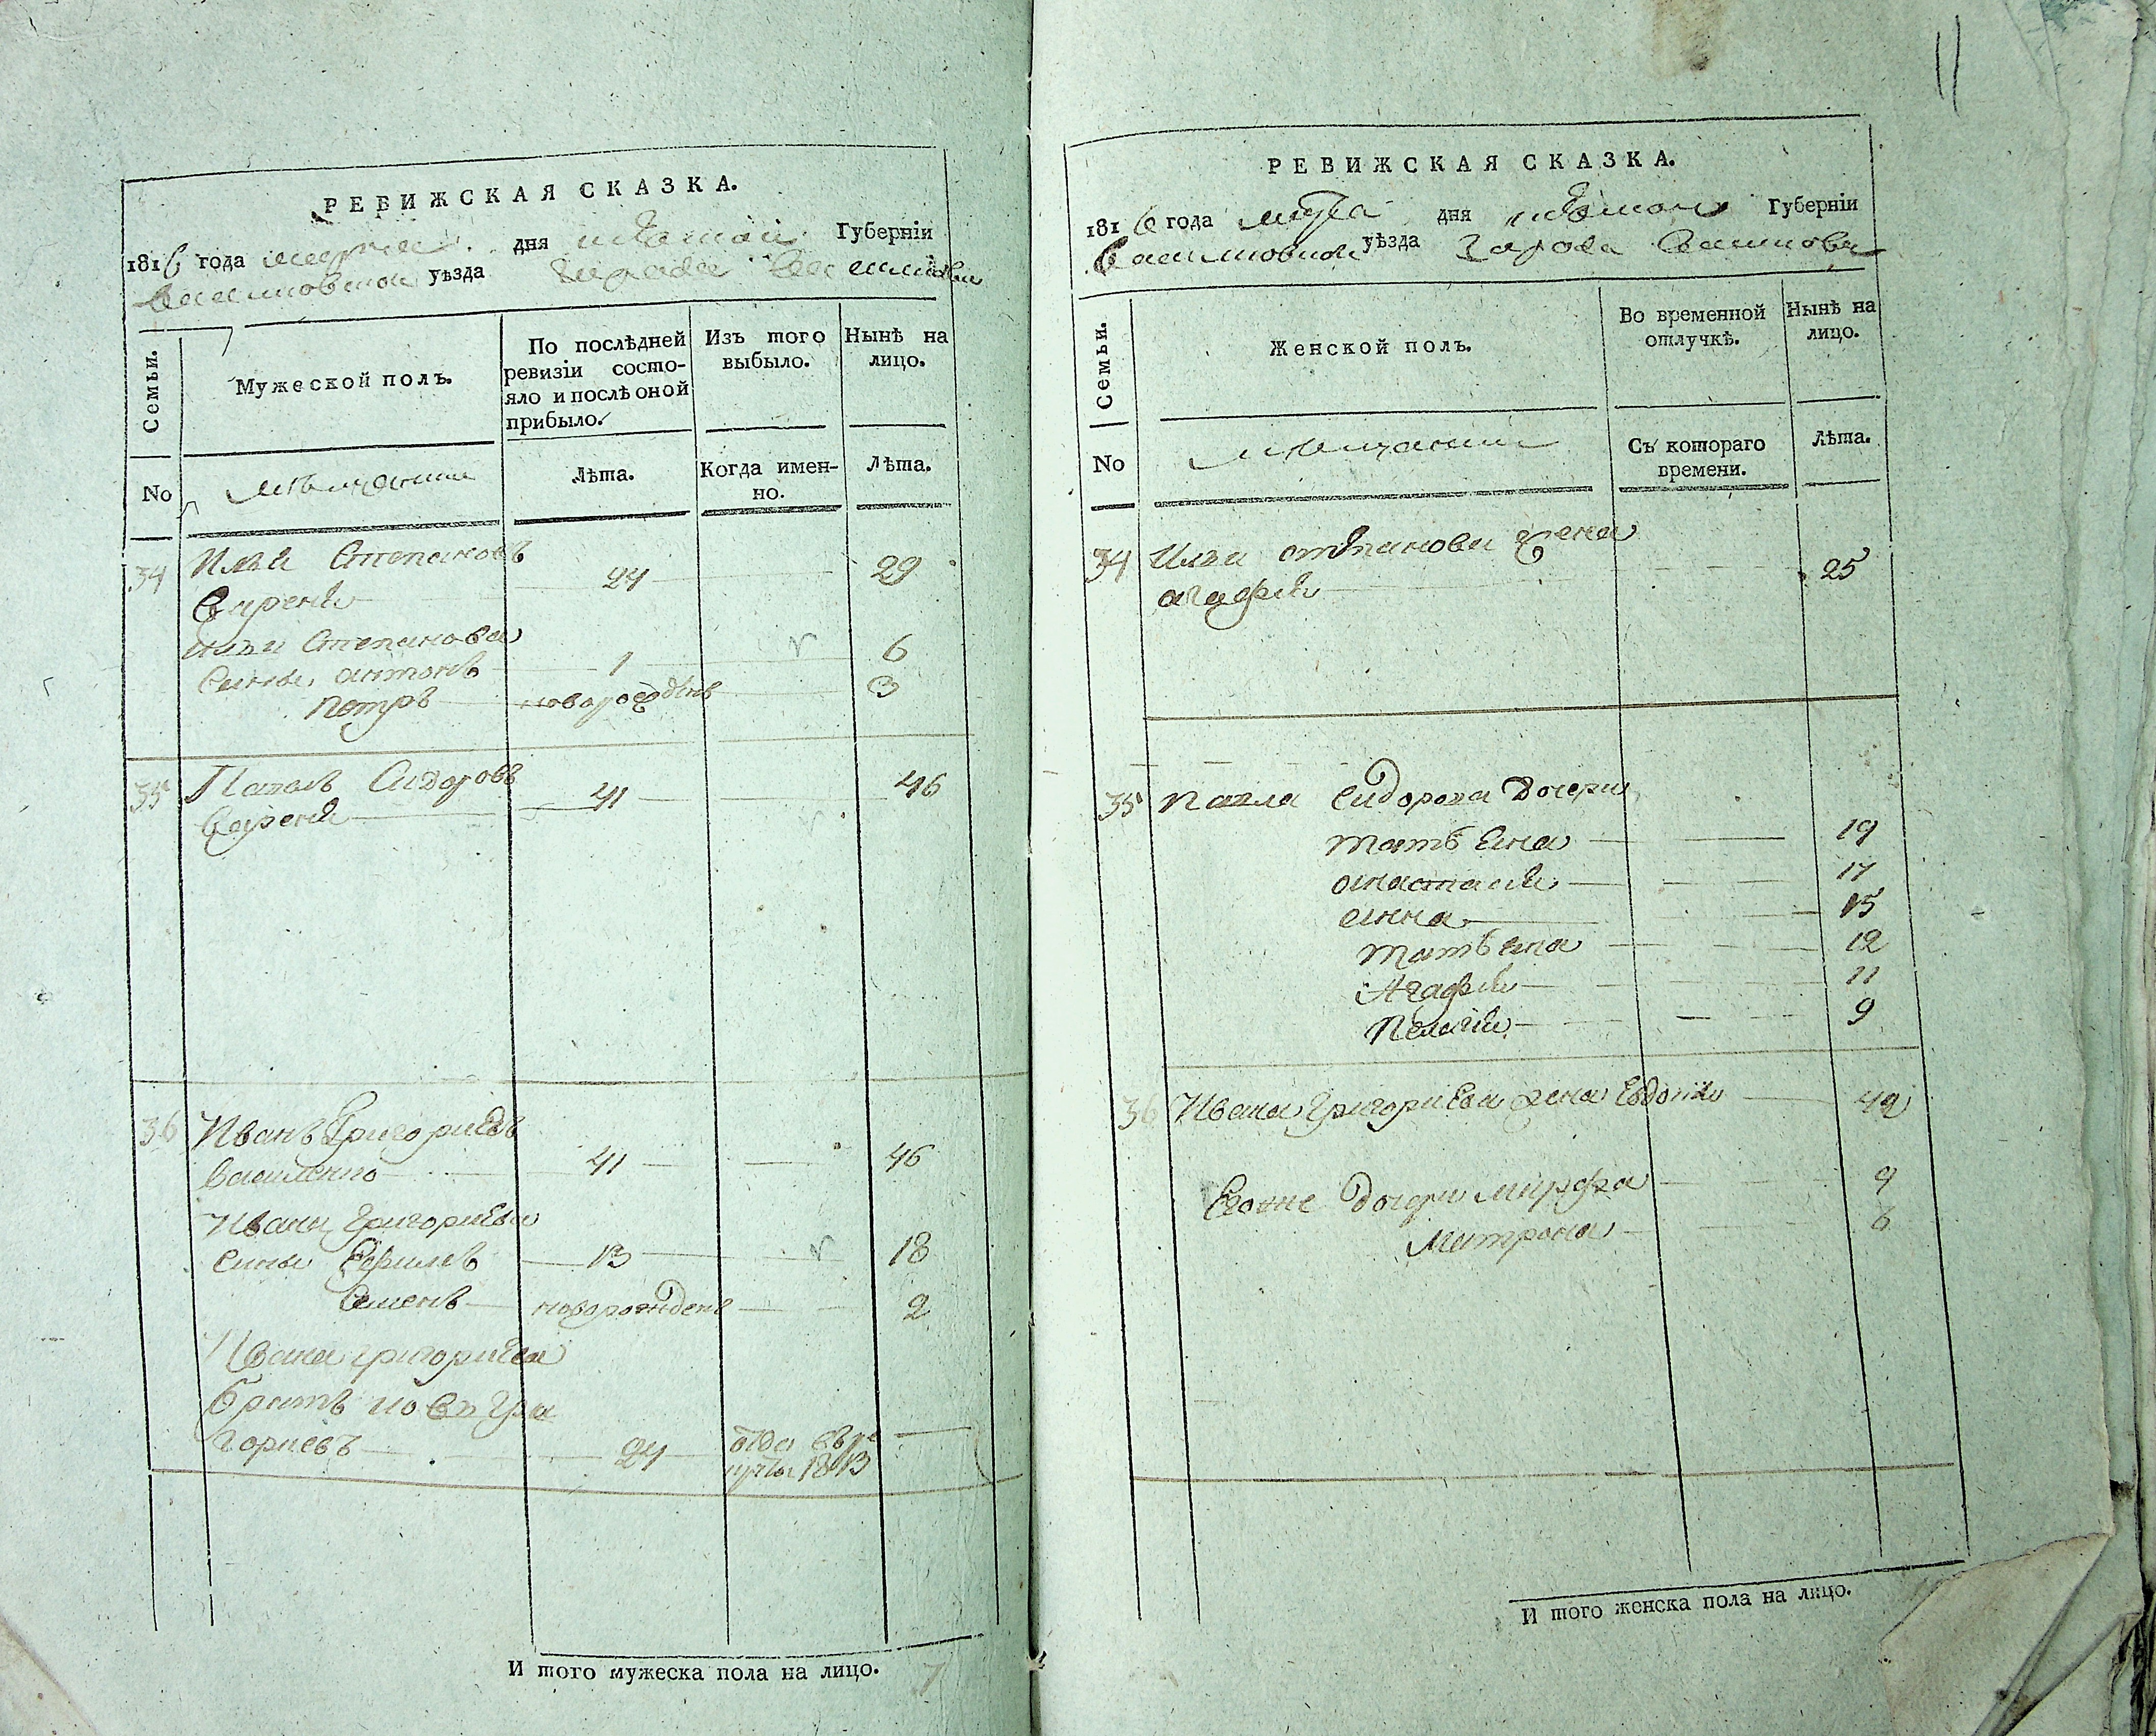 РЕВИЖСКАЯ СКАЗКА.
1816 года марта дня Губерніи
уѣзда города
Семьи.
Мужеской полъ.
По послѣдней ревизіи состо-
яло и послѣ оной
прибыло.
Изъ того
выбыло.
Нынѣ на
лицо.
No
мѣщанин
Лѣта.
Когда имен-
но.
Лѣта.
34 Илья Степановъ
24 29
Ильи Степанова
сынъ антонъ 1 6
петръ новорожденъ 3
35 Павелъ Сидоровъ
41 46
36 Иванъ Григориевъ
41 46
Ивана Григориева
сынъ 13 18
Семенъ новорожденъ 2
Ивана григориева
братъ
гориевъ 24 1813
И того мужеска пола на лицо. 7
11
РЕВИЖСКАЯ СКАЗКА.
1816 года марта дня Губерніи
уѣзда города
Семьи.
Женской полъ.
Во временной
отлучкѣ.
Нынѣ на
лицо.
No
Съ котораго
времени.
Лѣта.
34 Ильи степанова жена
агафия 25
35 павла сидорова дочери
татьяна 19
анастасия 17
анна 15
татьяна 12
Агафия 11
Пелагия 9
36 Ивана Григориева жена Евдокия 42
Егоже дочери марфа 9
матрона 6
И того женска пола на лицо.